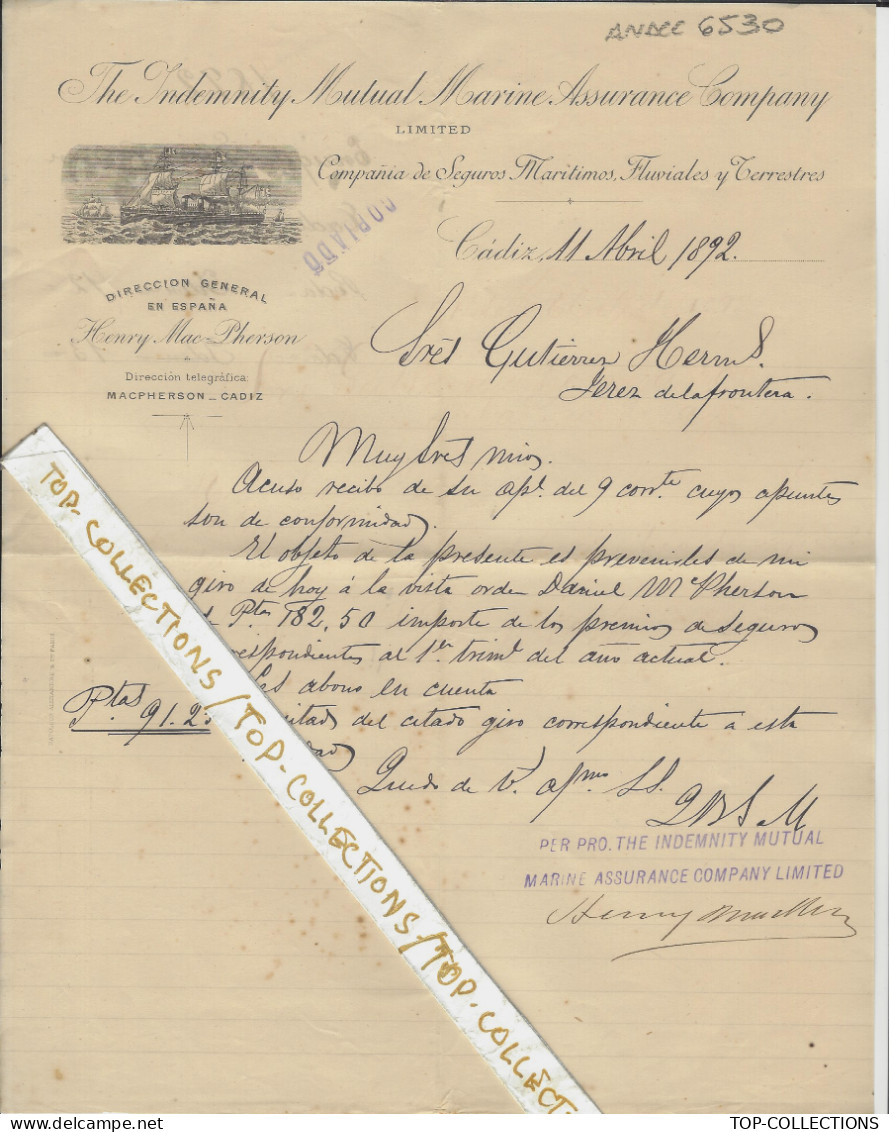 ANDCC 6530
The Indemnity Mutual Marine Assurance Company
LIMITED
Compañia de Seguros Maritimos, Fluviales y Terrestres
COPIADO
Cádiz, 11 Abril 1892.
DIRECCION GENERAL
EN ESPAÑA
Henry Mac-Pherson
Dirección telegráfica:
MACPHERSON_CADIZ
Srės Gutierrez Hermṣ.
Jerez de la frontera.
Muy Srės mios.
Acuso recibo de su apḍ. del 9 corrṭe cuyos apuntes
son de conformidad.
El objeto de la presente es prevenirles de mi
giro de hoy á la vista orden Daniel McPherson
Ptas 182,50 importe de los premios de seguros
respondientes al 1er trimẹ del año actual.
Les abono en cuenta
Ptas 91.2 mitad del citado giro correspondiente a esta
Quedo de V. afmo SS.
QBSM
PER PRO. THE INDEMNITY MUTUAL
MARINE ASSURANCE COMPANY LIMITED
TOP-COLLECTIONS / TOP-COLLECTIONS / TOP-COLLECTI
TOP-COLLECTIONS